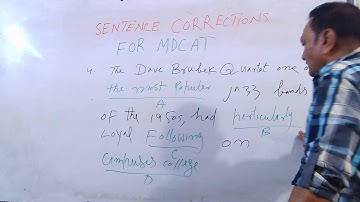 SENTENCE CORRECTIONS
FOR MDCAT
4. The Dave Brubek Quartet one o
the most Popular jazz bands
A
of the 1950s, had particularly
B
Loyal Following on
C
Campuses college
D